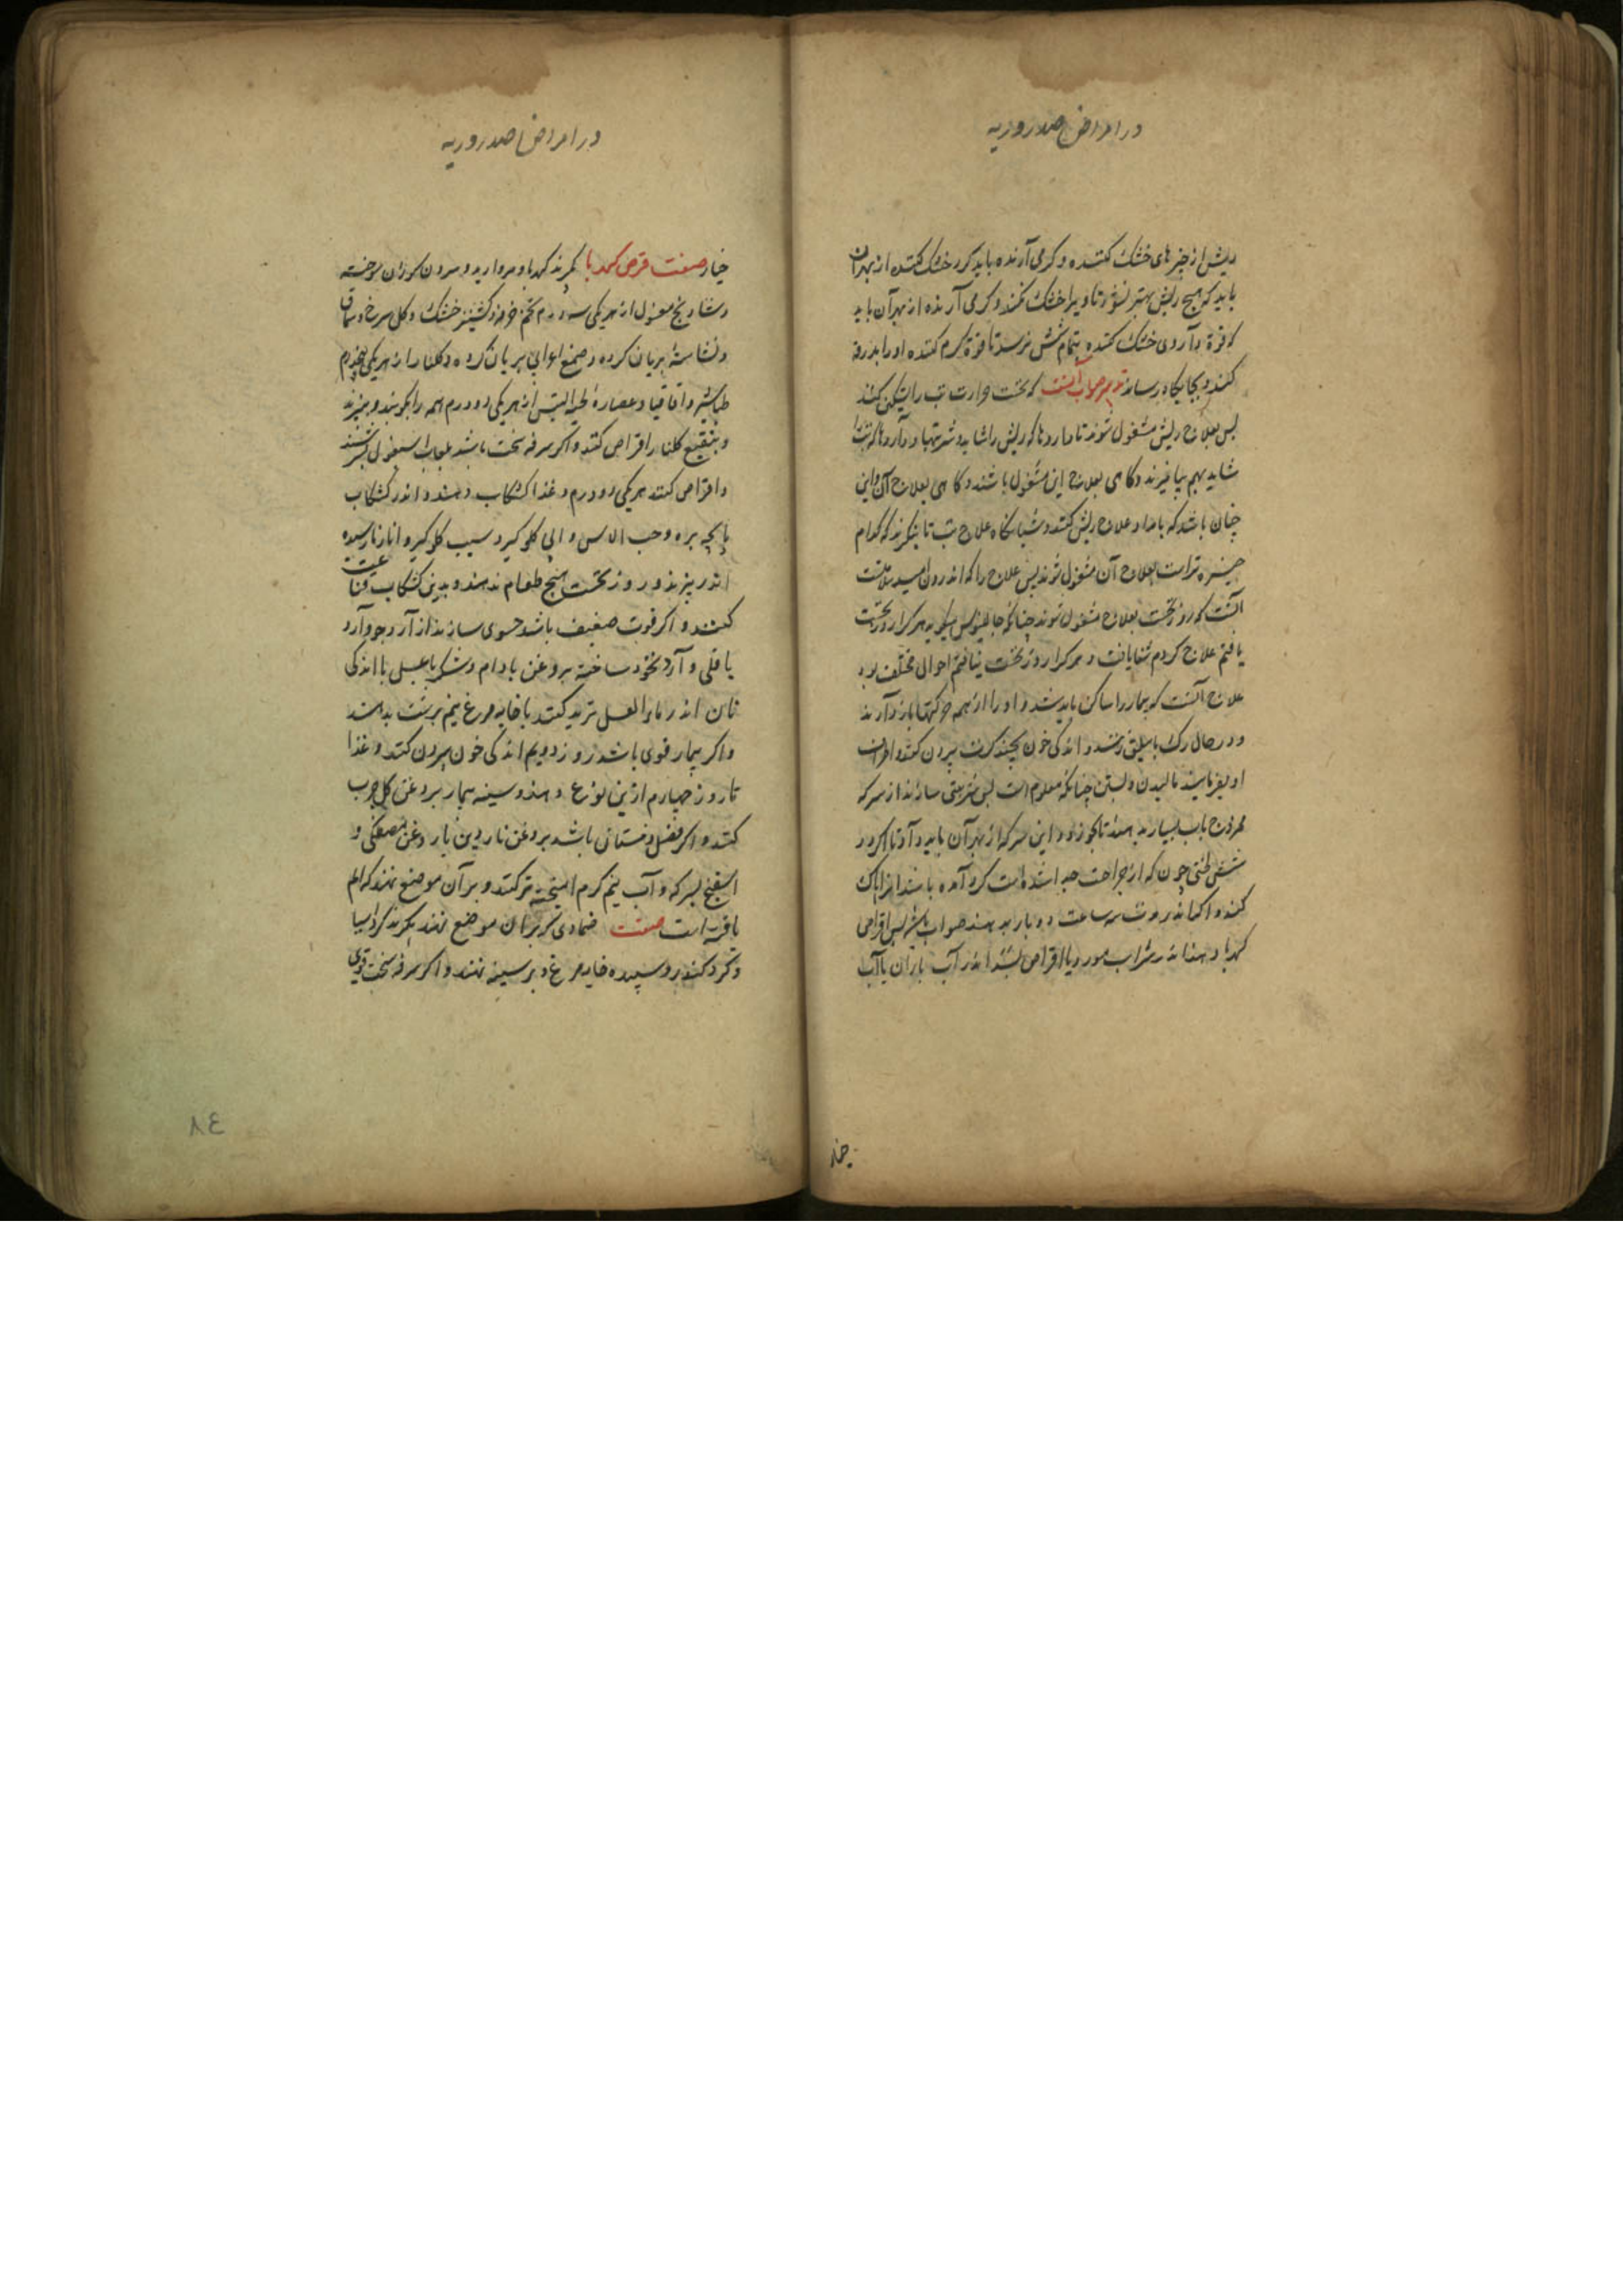 در امراض صدر و ریه
ریش از چیزهای خشک کننده و کرمی آرنده باید کرد خشک کننده از بهر آن
باید که هیچ ریش بهتر نشود تا ویرا خشک نکنند و کرمی آرنده از بهر آن باید
که قوة داروی خشک کننده بتمام شش نرسد تا قوة کرم کننده او را بدرقه
کنند و بجایکاه رساند تدبیر صواب آنست که نخست حرارت تب را تسکین کنند
پس بعلاج ریش مشغول شوند تا داروها که ریش را شاید شربتها و داروها که تب را
شاید بهم بیامیزند و کاهی بعلاج این مشغول باشند و کاهی بعلاج آن و این
چنان باشد که بامداد علاج ریش کنند و شبانکاه علاج تب تا بنکرند که کدام
چیره تر است بعلاج آن مشغول شوند پس علاج را که اندر وی امید سلامتست
آنست که روز نخست بعلاج مشغول شوند چنانکه جالینوس میکوید هر کرا روز نخست
یافتم علاج کردم شفا یافت و هر کرا روز نخست نیافتم احوالی مختلف بود
علاج آنست که بیمار را ساکن باید شد و او را از همه حرکتها باز دارند
و در حال رک باسلیق زنند و اندکی خون بچند کرت بیرون کنند و اطراف
او بفرمایند مالیدن و بستن چنانکه معلوم است پس شربتی سازند از سرکه
ممزوج باب بسیار بدهند تا بخورد و این سرکه از بهر آن باید داد تا اکر در
شش خونی که از جراحت جدا شده است کرد آمده باشد انرا پاک
کند و اکر اندر مدت سه ساعت دو بار بدهند صواب باشد پس اقراص
کهربا دهند اندر شراب مورد یا اقراص بسد اندر آب باران یا آب
خیار
در امراض صدر و ریه
خیار صفت قرص کهربا بکیرند کهربا و مروارید و سرون کوزن سوخته
و شادنج مغسول از هر یکی سه درم تخم خرفه و کشنیز خشک و کل سرخ و سماق
و نشاسته بریان کرده و صمغ اعرابی بریان کرده و کلنار از هر یکی پنجدرم
طباشیر و اقاقیا و عصارة لحیة التیس از هر یکی دو درم همه را بکوبند و ببیزند
و بنقیع کلنار اقراص کنند و اکر سرفه سخت باشد بلعاب اسبغول بسرشند
و اقراص کنند هر یکی دو درم و غذا کشکاب دهند و اندر کشکاب
پاچه بره و حب الاس و ابی کلو کیر و سیب کلو کیر و انار نارسیده
اندر پزند و روز نخست هیچ طعام ندهند و بدین کشکاب قناعت
کنند و اکر قوت ضعیف باشد حسوی سازند از آرد جو و آرد
باقلی و آرد نخود ساخته بروغن بادام و شکر یا عسل با اندکی
نان اندر ماء العسل ترید کنند یا خایه مرغ نیم برشت بدهند
و اکر بیمار قوی باشد روز دویم اندکی خون بیرون کنند و غذا
تا روز چهارم ازین نوع دهند و سینه بیمار بروغن کل چرب
کنند و اکر فصل زمستان باشد بروغن ناردین یا روغن مصطکی و
اسفنج بسرکه و آب نیم کرم امیخته تر کنند و بر آن موضع نهند که الم
یافته است صفت ضمادی که بران موضع نهند بکیرند کرد اسیا
و کرد کندر و سپیده خایه مرغ و بر سینه نهند و اکر سرفه سخت قوی
٨٤